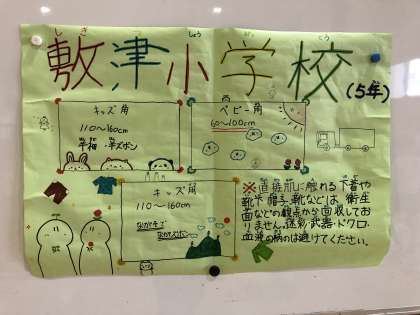 敷津小学校
(5年)
キッズ角
110〜160cm
半袖・半ズボン
ベビー角
60〜100cm
キッズ角
110〜160cm
ながそで
ながズボン
※直接肌に触れる下着や
靴下、帽子、靴などは、衛生
面などの観点から回収してお
りません。迷彩・武器・ドクロ・
血液の柄のは避けてください。